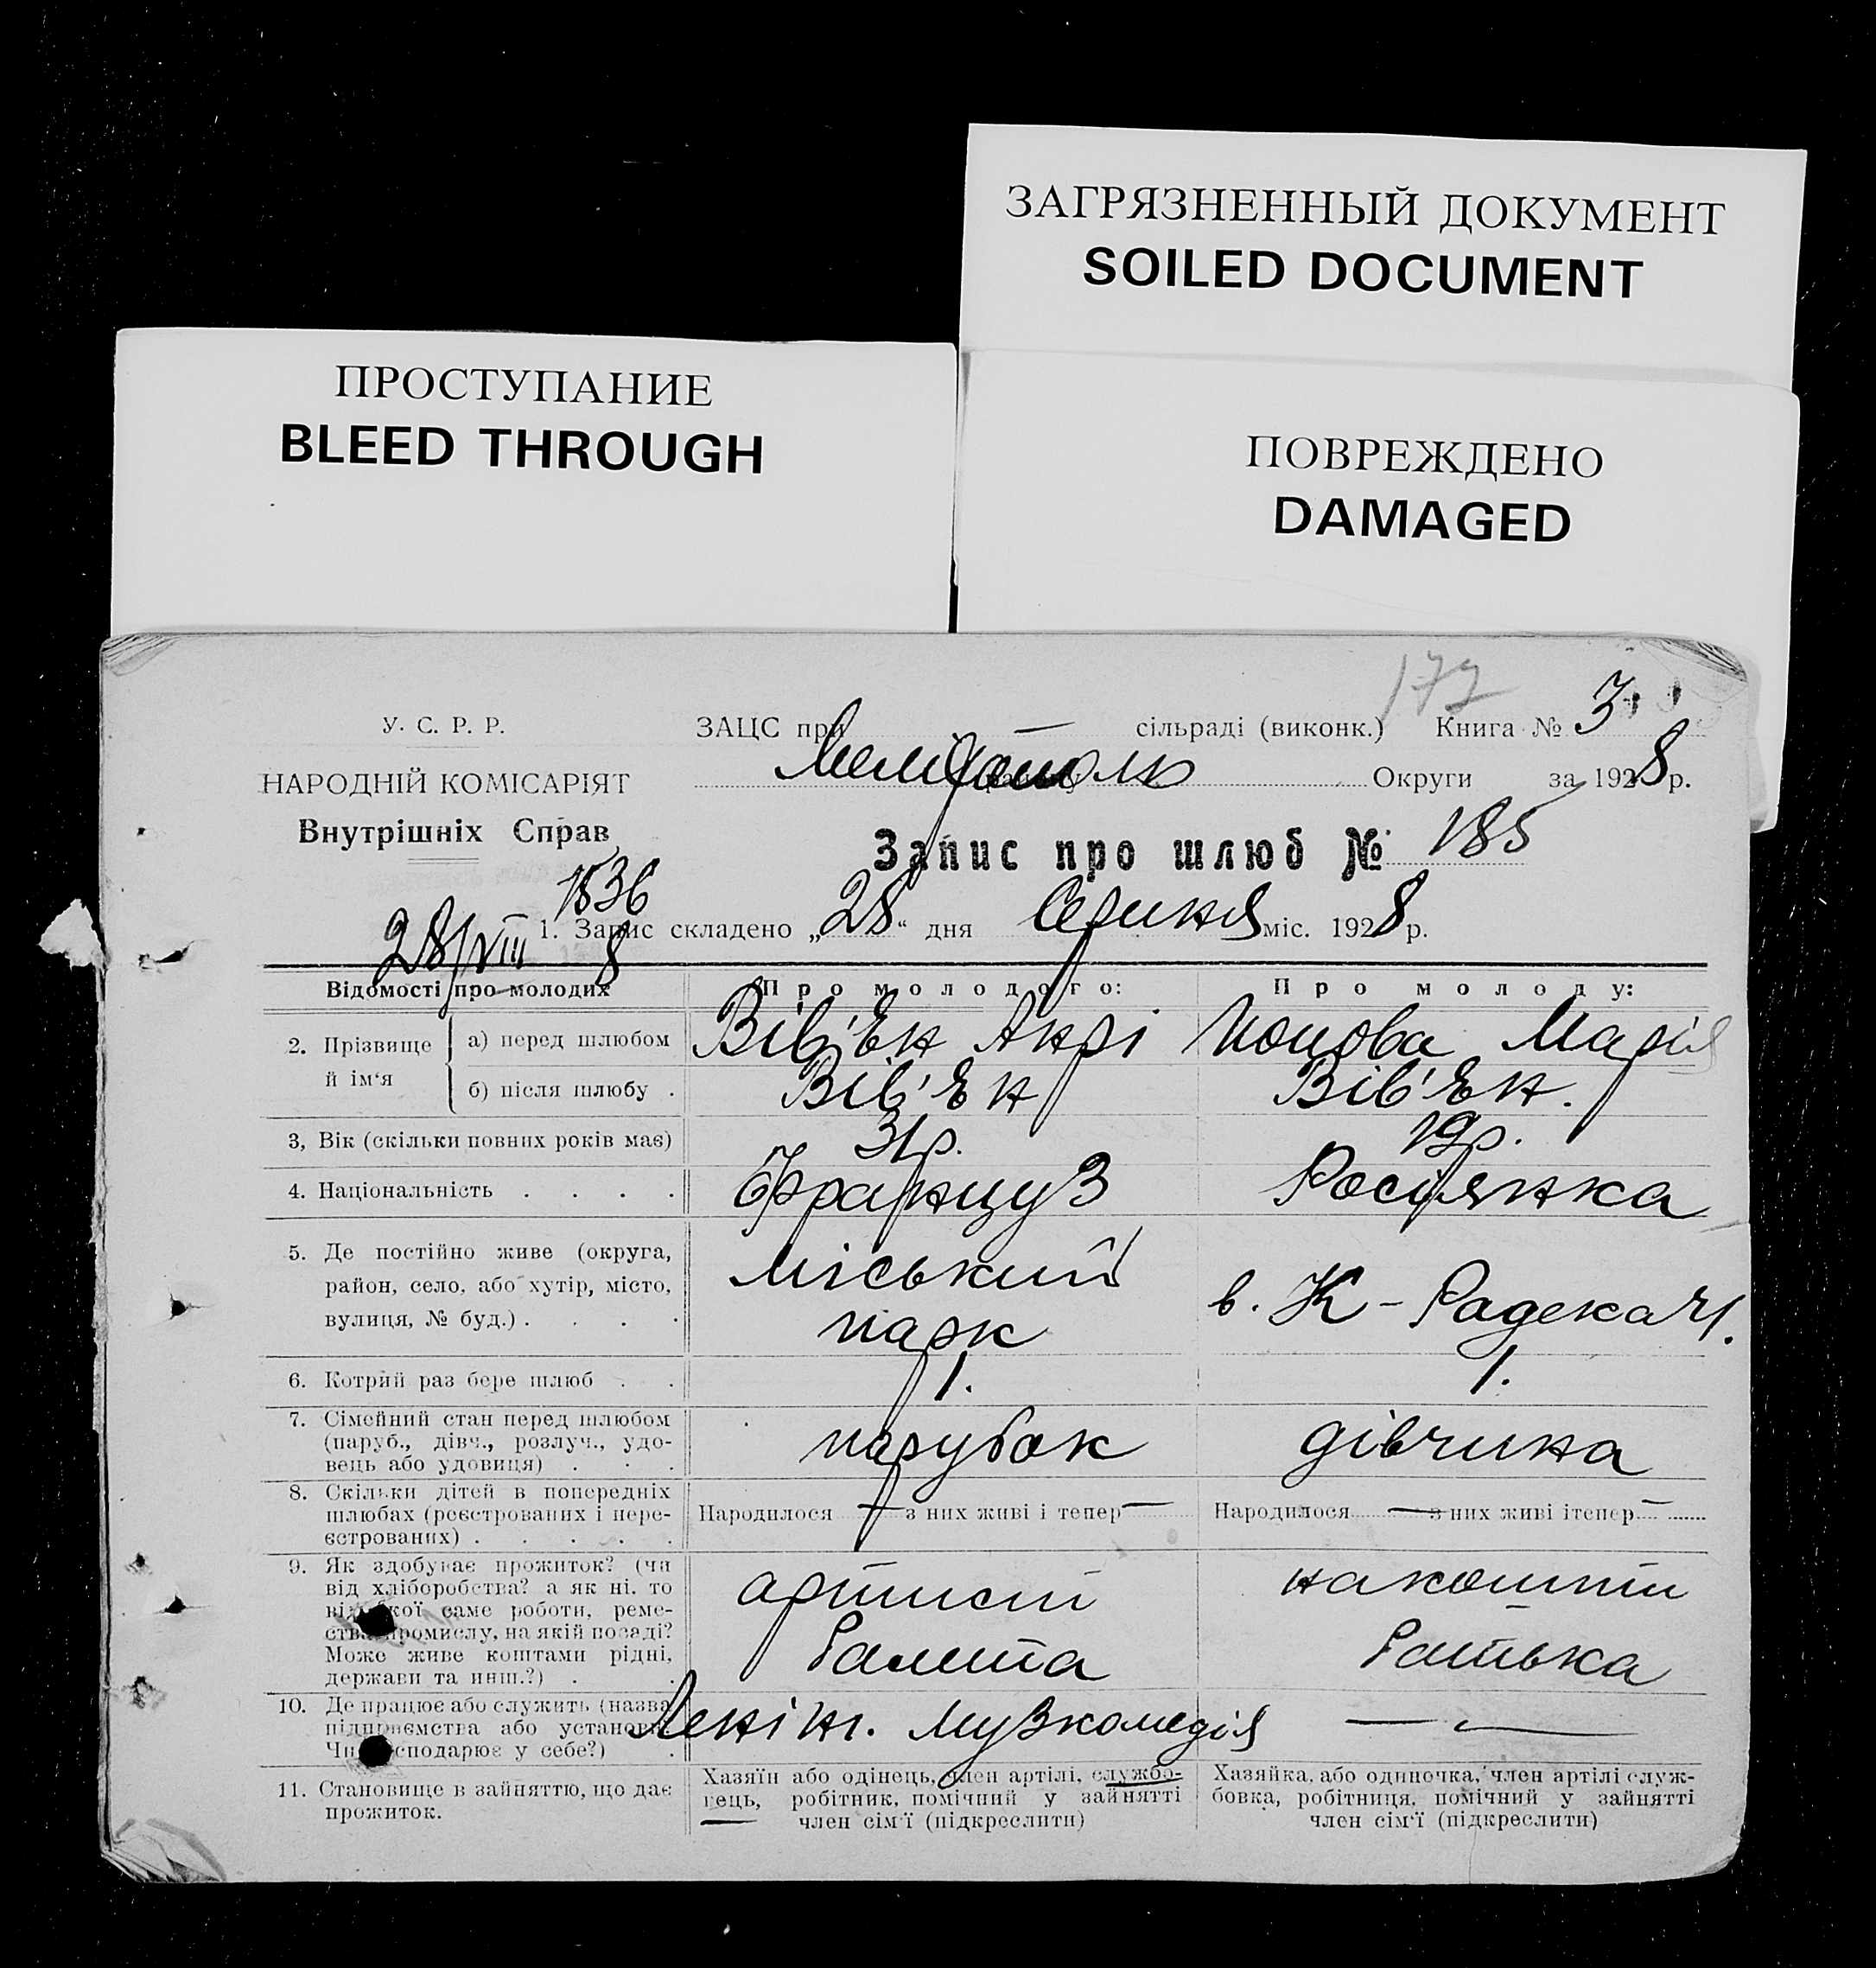 ЗАГРЯЗНЕННЫЙ ДОКУМЕНТ
SOILED DOCUMENT
ПРОСТУПАНИЕ
BLEED THROUGH
ПОВРЕЖДЕНО
DAMAGED
177
У. С. Р. Р.
ЗАЦС при — сільраді (виконк.) Книга № 3
НАРОДНІЙ КОМІСАРІЯТ
Мелітополь Округи за 1928 р.
Внутрішніх Справ
Запис про шлюб № 185
1836
28/VIII 8
1. Запис складено „28“ дня Серпня міс. 1928 р.
Відомості про молодих
Про молодого:
Про молоду:
2. Прізвище й ім'я
а) перед шлюбом
Вів'Ен Анрі
Попова Марія
б) після шлюбу .
Вів'Ен
Вів'Ен.
3, Вік (скільки повних років має)
31 р.
19 р.
4. Національність . . . .
Француз
Росіянка
5. Де постійно живе (округа,
район, село, або хутір, місто,
вулиця, № буд.) . . . .
міський
парк
в. К-Радека 41.
6. Котрий раз бере шлюб . .
1.
1.
7. Сімейний стан перед шлюбом
(паруб., дівч., розлуч., удо-
вець або удовиця) . . .
парубок
дівчина
8. Скільки дітей в попередніх
шлюбах (реєстрованих і пере-
єстрованих) . . . . .
Народилося — з них живі і тепер —
Народилося — з них живі ітепер —
9. Як здобуває прожиток? (чи
від хліборобства? а як ні. то
від якої саме роботи, реме-
ства промислу, на якій посаді?
Може живе коштами рідні,
держави та инш.?) .
артист
на кошти
батька
10. Де працює або служить (назва
підприємства або установи
Чи господарює у себе?) .
Ленінг. Музкомедія
—
11. Становище в зайняттю, що дає
прожиток.
Хазяїн або одінець, член артілі, службо-
вець, робітник, помічний у зайнятті
член сім'ї (підкреслити)
Хазяйка, або одиночка, член артілі служ-
бовка, робітниця, помічний у зайнятті
член сім'ї (підкреслити)